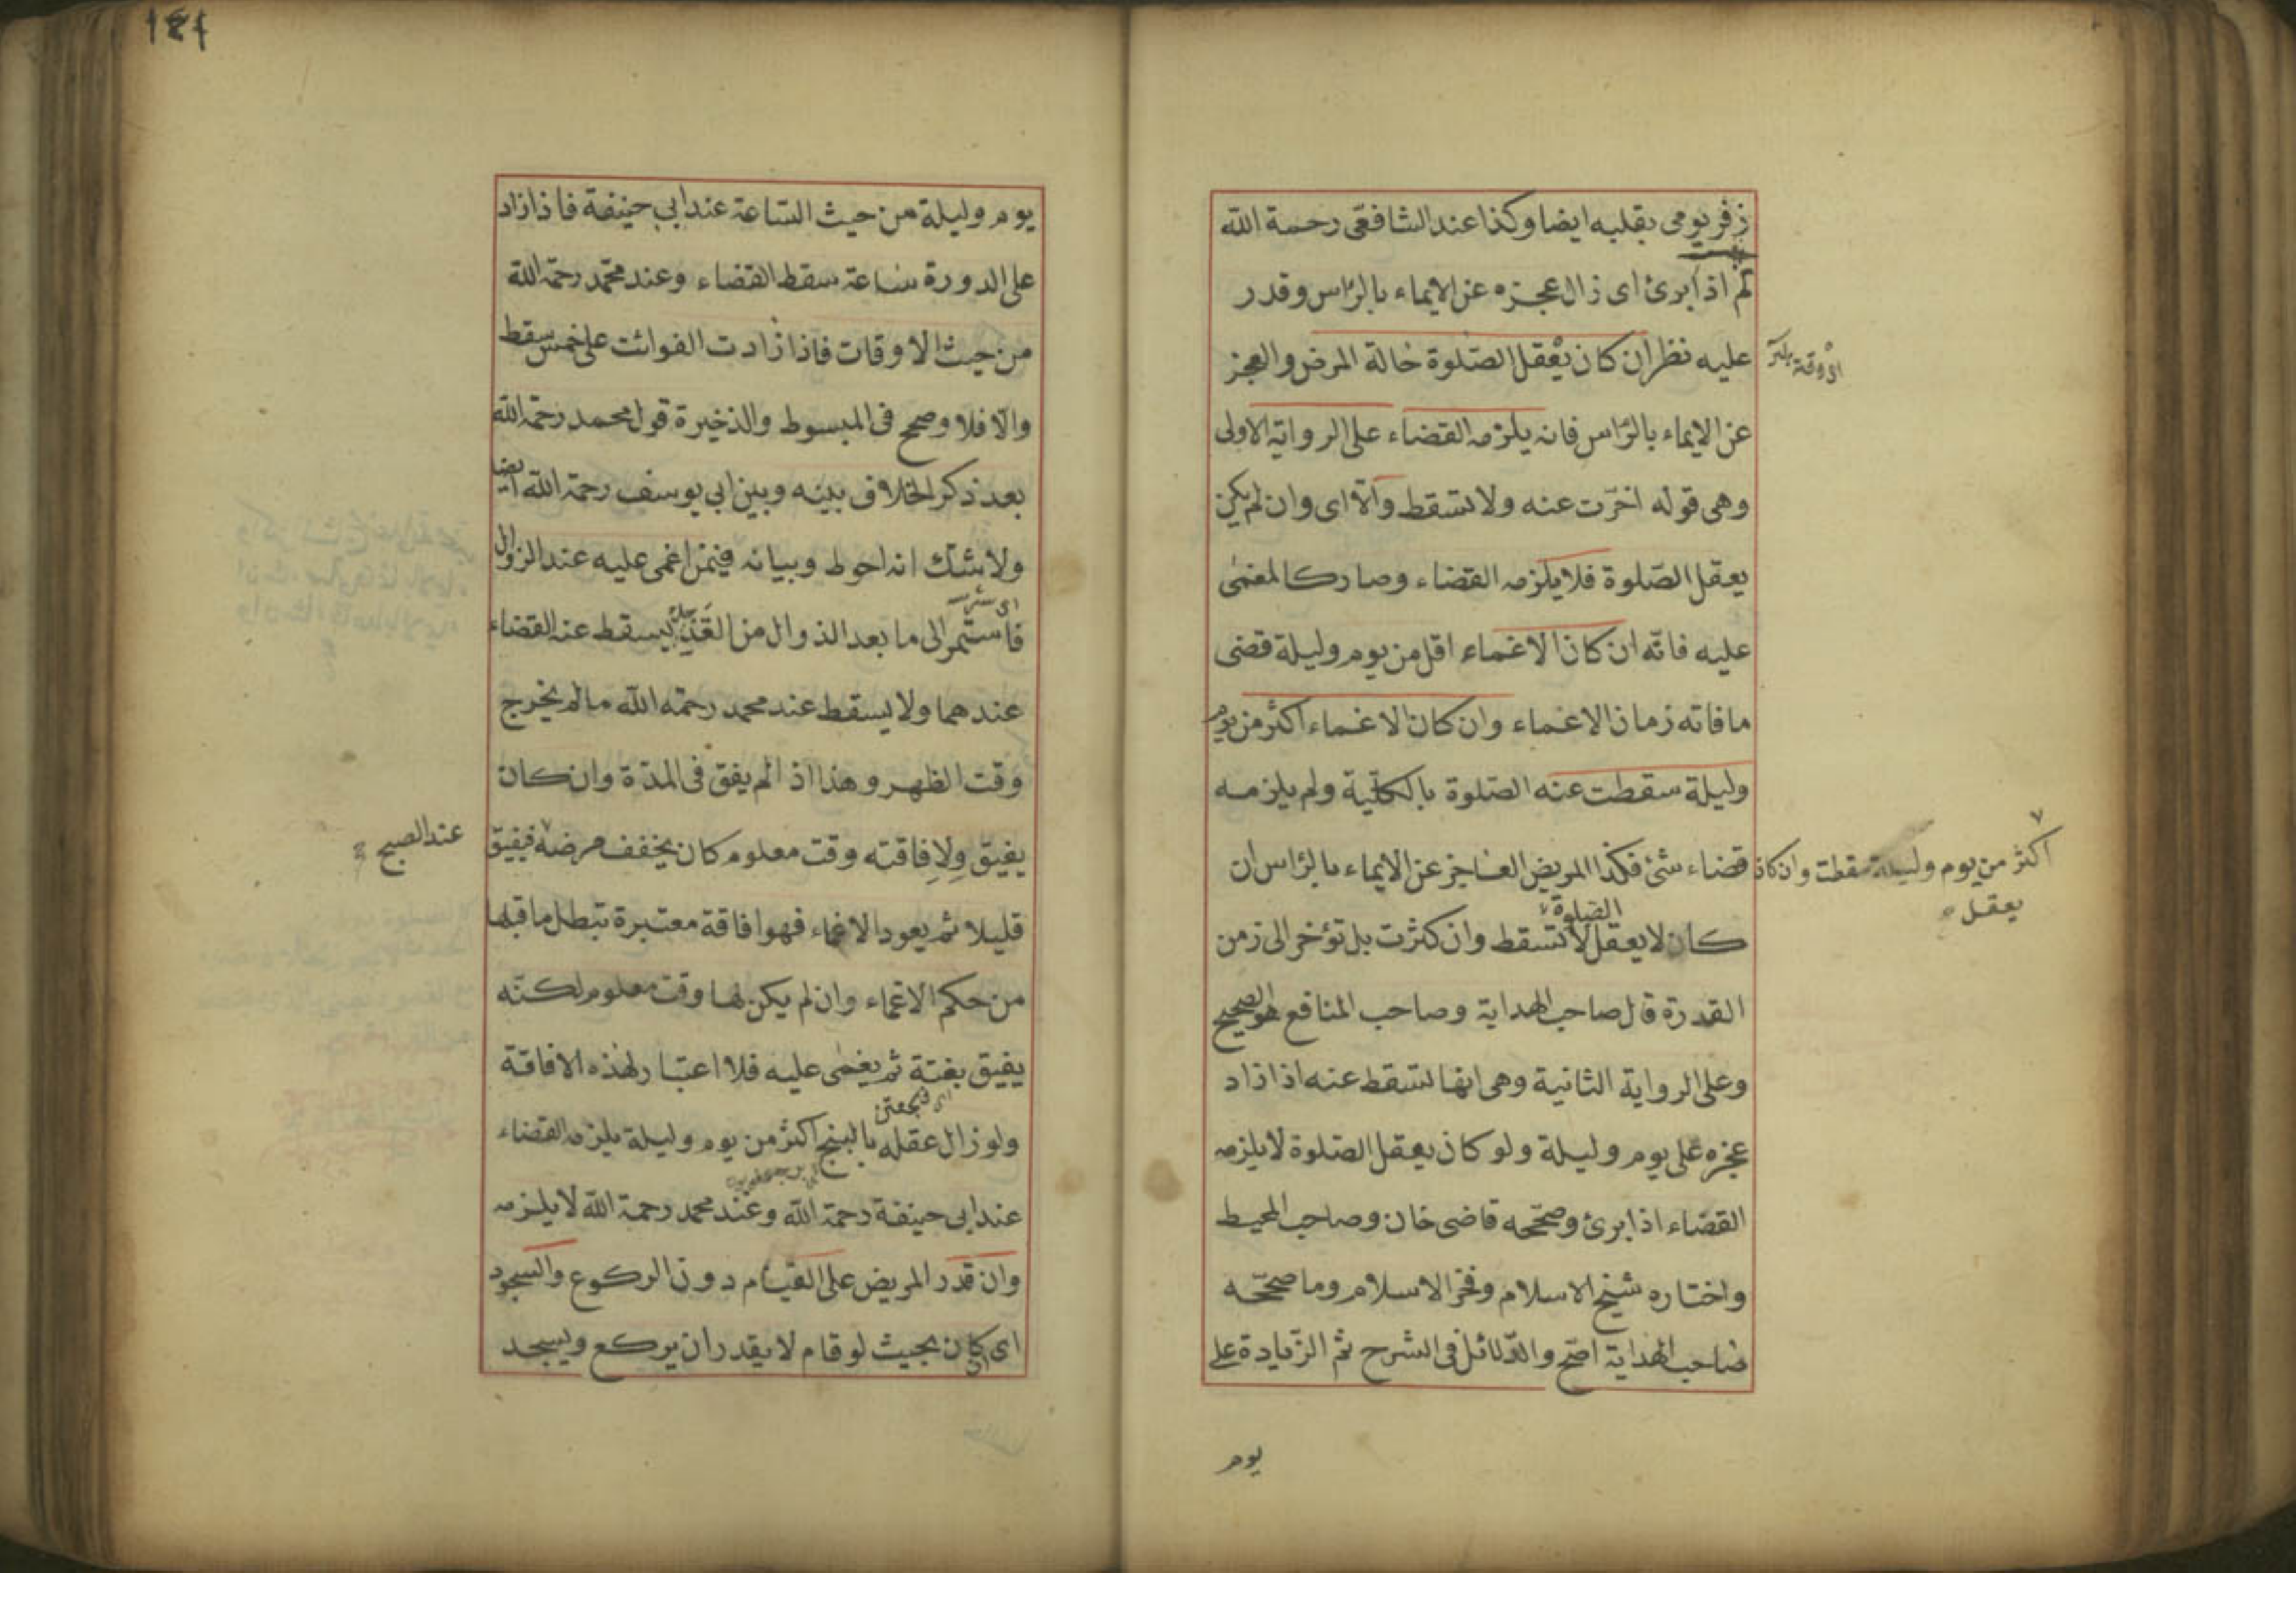 زفر يومى بقلبه ايضا وكذا عند الشافعى رحمة الله
ثم اذا برئ اى زال عجزه عن الايماء بالرأس وقدر
عليه نظر ان كان يعقل الصلوة حالة المرض والعجز
عن الايماء بالرأس فانه يلزمه القضاء على الرواية الاولى
وهى قوله اخرت عنه ولا تسقط والا اى وان لم يكن
يعقل الصلوة فلا يلزمه القضاء وصار كالمغمى
عليه فانه ان كان الاغماء اقل من يوم وليلة قضى
ما فاته زمان الاغماء وان كان الاغماء اكثر من يوم
وليلة سقطت عنه الصلوة بالكلية ولم يلزمه
قضاء شئ فكذا المريض العاجز عن الايماء بالرأس ان
اكثر من يوم وليلة سقطت وان كان
يعقل
الصلوة
كان لا يعقل لا تسقط وان كثرت بل تؤخر الى زمن
القدرة قال صاحب الهداية وصاحب المنافع هو الصحيح
وعلى الرواية الثانية وهى انها تسقط عنه اذا زاد
عجزه على يوم وليلة ولو كان يعقل الصلوة لا يلزمه
القضاء اذا برئ وصححه قاضى خان وصاحب المحيط
واختاره شيخ الاسلام وفخر الاسلام وما صححه
صاحب الهداية اصح والدلائل فى الشرح ثم الزيادة على
يوم
يوم وليلة من حيث الساعة عند ابى حنيفة فاذا زاد
على الدورة ساعة سقط القضاء وعند محمد رحمة الله
من حيث الاوقات فاذا زادت الفوائت على خمس سقط
والا فلا وصحح فى المبسوط والذخيرة قول محمد رحمة الله
بعد ذكر الخلاف بينه وبين ابى يوسف رحمة الله ايضا
ولا شك انه احوط وبيانه فيمن اغمى عليه عند الزوال
فاستمر الى ما بعد الذوال من الغد يسقط عنه القضاء
عندهما ولا يسقط عند محمد رحمه الله ما لم يخرج
وقت الظهر وهذا اذا لم يفق فى المدة وان كان
يفيق ولافاقته وقت معلوم كان يخفف مرضه فيفيق
عند الصبح
قليلا ثم يعود الاغماء فهو افاقة معتبرة تبطل ما قبلها
من حكم الاغماء وان لم يكن لها وقت معلوم لكنه
يفيق بغتة ثم يغمى عليه فلا اعتبار لهذه الافاقة
ولو زال عقله بالبنج اكثر من يوم وليلة يلزمه القضاء
عند ابى حنيفة رحمة الله وعند محمد رحمة الله لا يلزمه
وان قدر المريض على القيام دون الركوع والسجود
اى كان بحيث لو قام لا يقدر ان يركع ويسجد